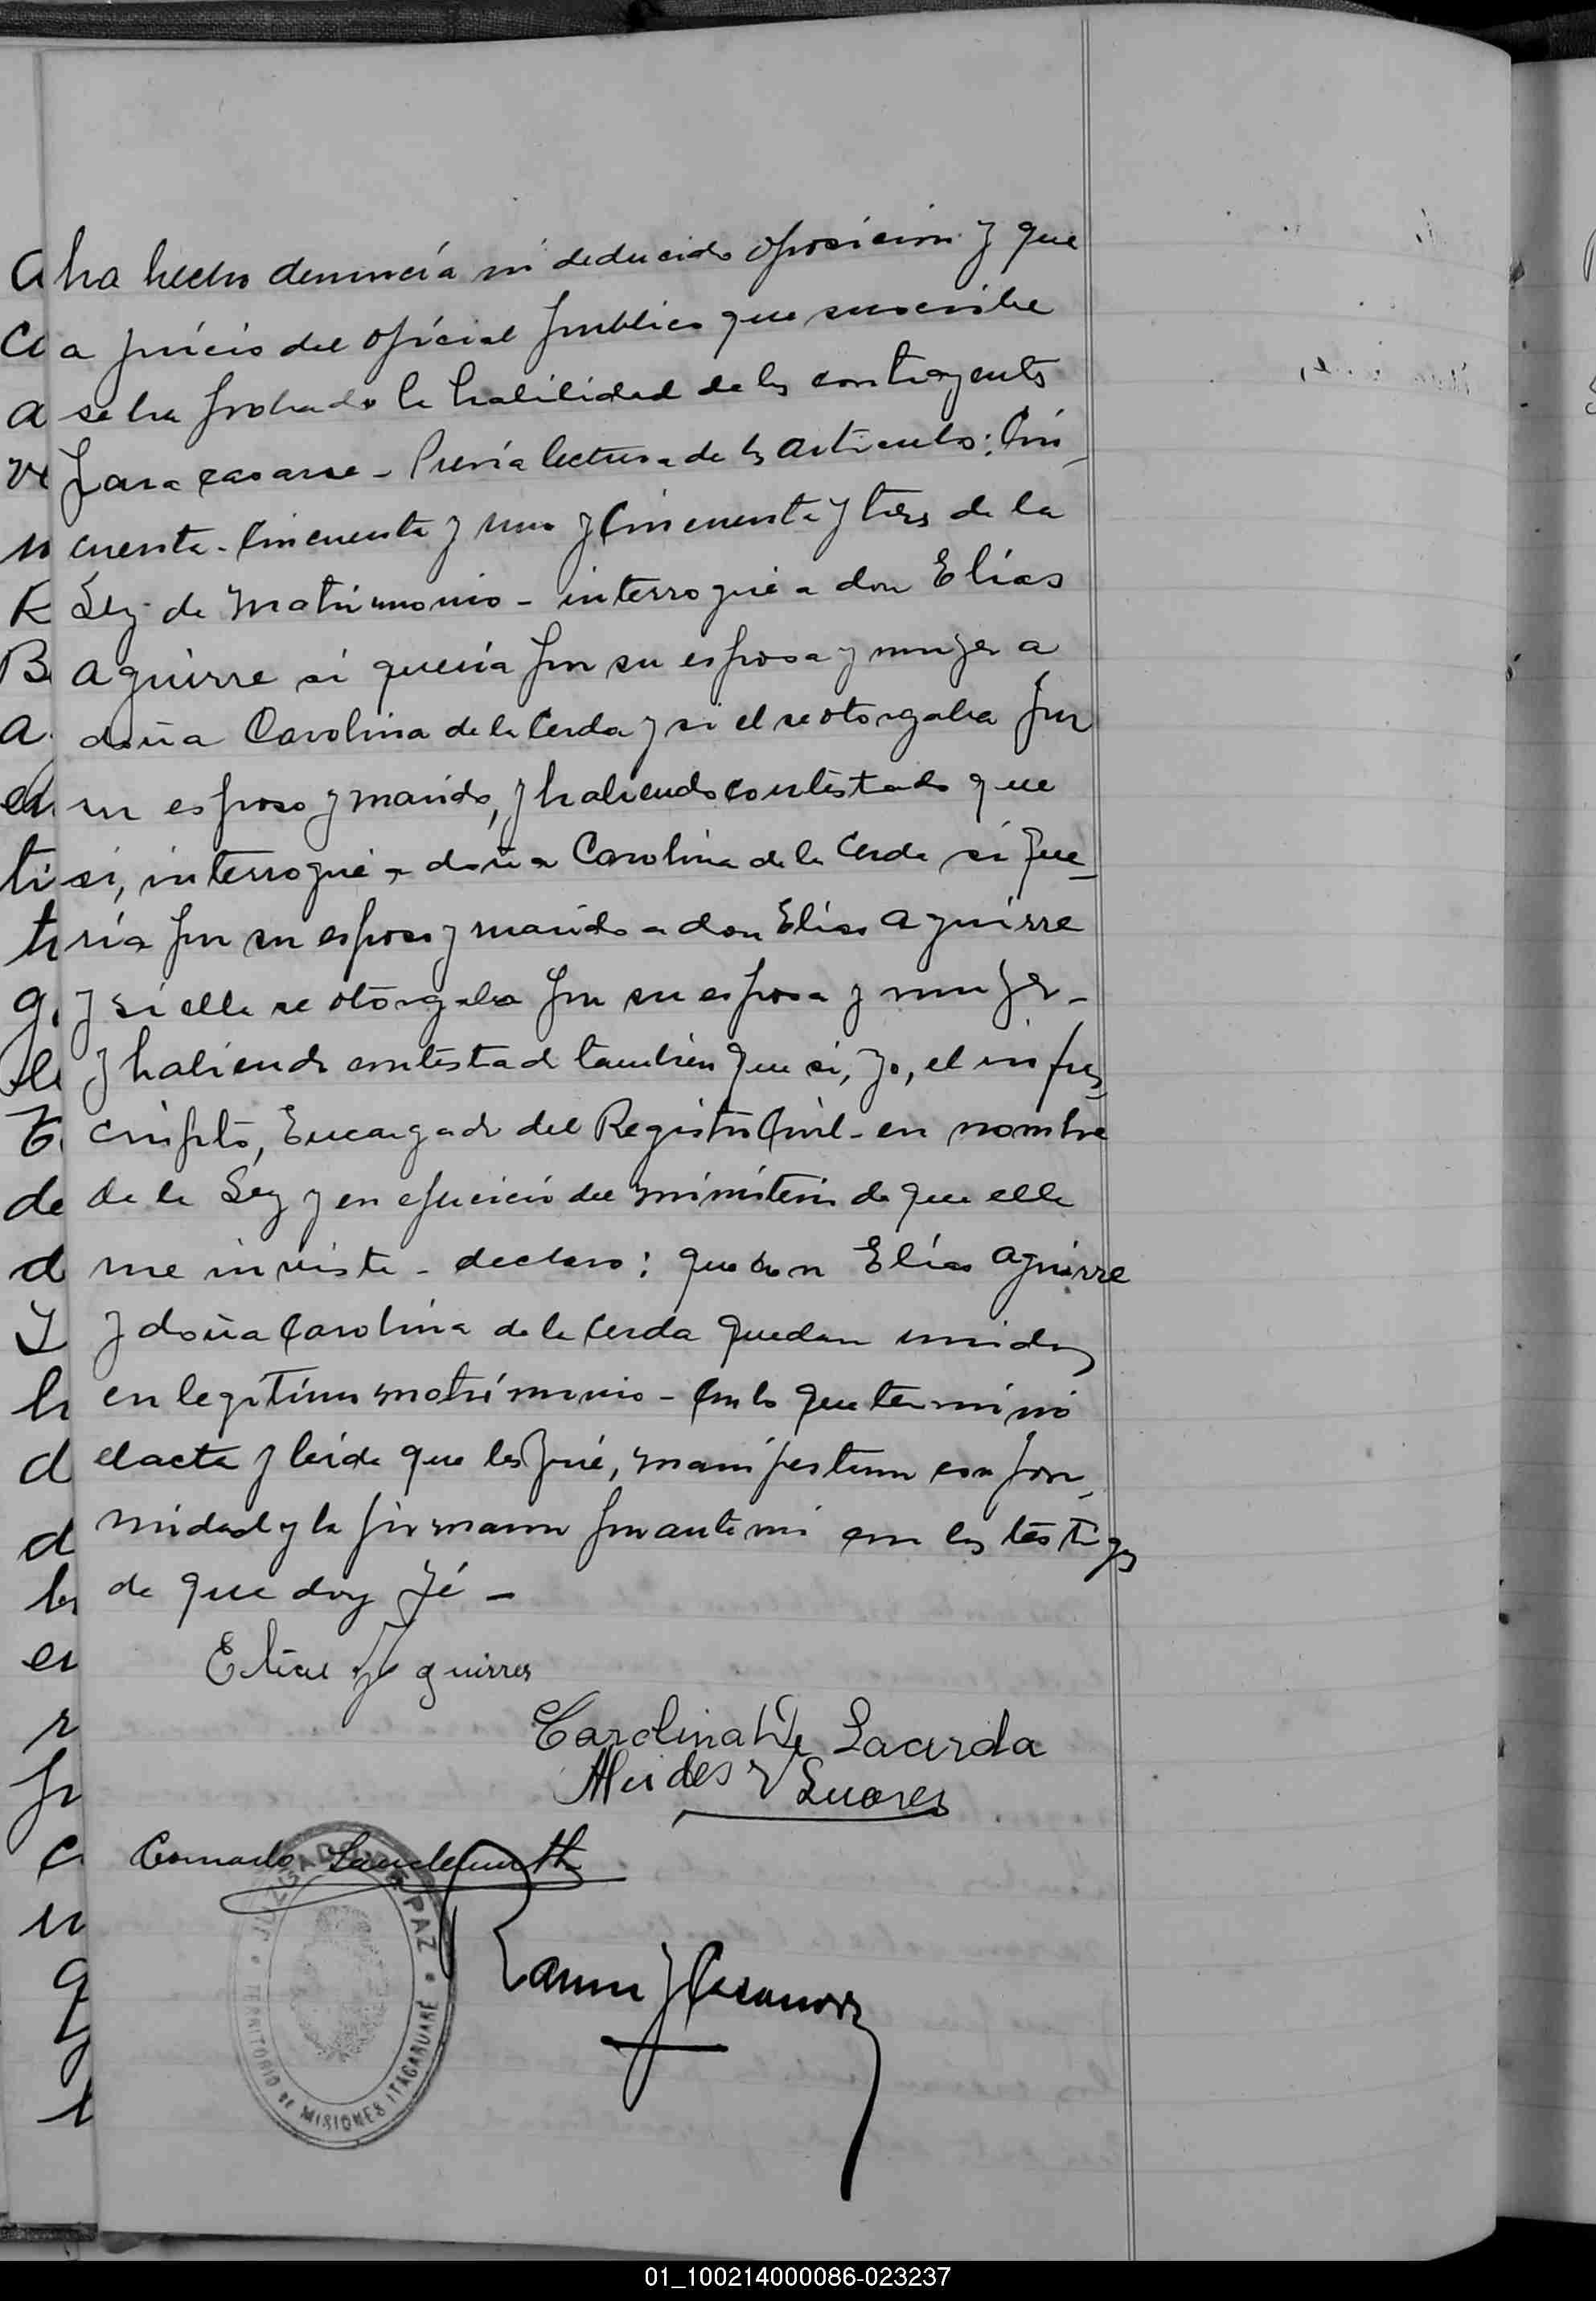 ha hecho denuncia ni deducido oposicion y que
a juicio del oficial publico que suscribe
se ha probado la habilidad de los contrayentes
para casarse - Previa lectura de los articulos: Cin-
cuenta - Cincuenta y uno y Cincuenta y tres de la
Ley de Matrimonio - interrogué a don Elías
Aguirre si quería por su esposa y mujer a
doña Carolina de la Cerda y si el se otorgaba por
su esposo y marido, y habiendo contestado que
si, interrogué a doña Carolina de la Cerda si que-
ría por su esposo y marido a don Elías Aguirre
y si ella se otorgaba por su esposa y mujer -
y habiendo contestado tambien que si, yo, el infras-
cripto, Encargado del Registro Civil - en nombre
de la Ley y en ejercicio del ministerio de que ella
me inviste - declaro: que don Elías Aguirre
y doña Carolina de la Cerda quedan unidos
en legítimo matrimonio - Con lo que terminó
el acta y leida que les fué, manifestaron confor-
midad y la firmaron por ante mi con los testigos
de que doy fé -
Elias Aguirres
Carolina De Lacerda
Alcides Suares
Conrado
JUZGADO DE PAZ
TERRITORIO DE MISIONES ITACARUARE
01_100214000086-023237